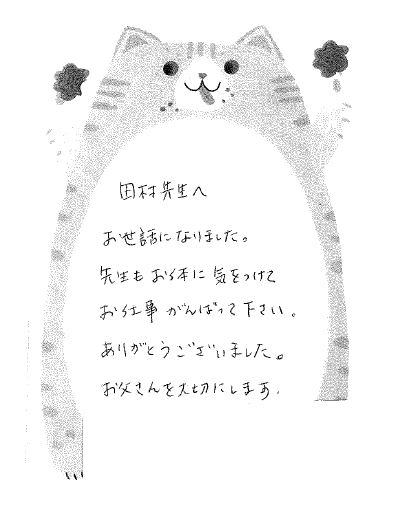 田村先生へ
お世話になりました。
先生もお体に気をつけて
お仕事がんばって下さい。
ありがとうございました。
お父さんを大切にします。